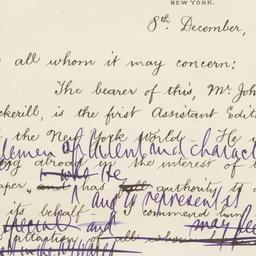 NEW YORK.
8th December,
all whom it may concern:
The bearer of this, Mr. Joh
ckerill, is the first Assistant Edit
the New York World. He
gentlemen of talent and charact
abroad in the interest of t
aper, and has authority to
and to represent
its behalf. I commend him
special and
attention of all whom